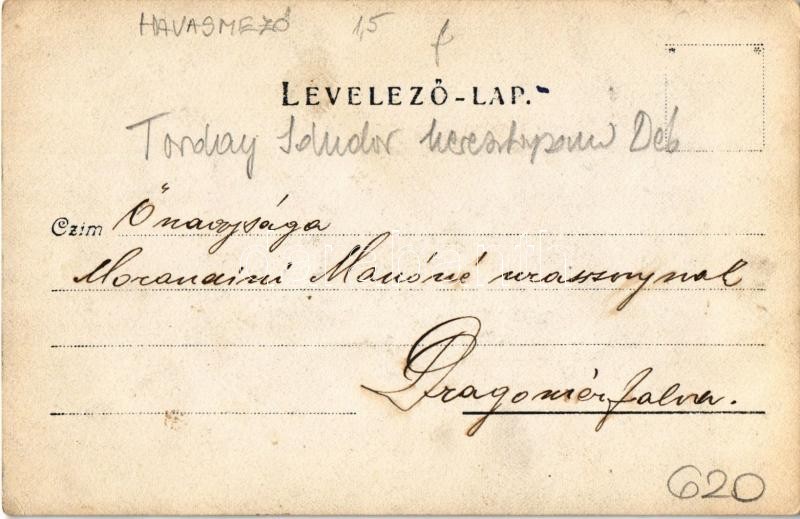 HAVASMEZŐ 1,5 f
LEVELEZŐ-LAP.
Torday Sándor keresztapám Deb
Czim Őnagysága
Morandini Manóné urasszonynak
Dragomérfalva.
620